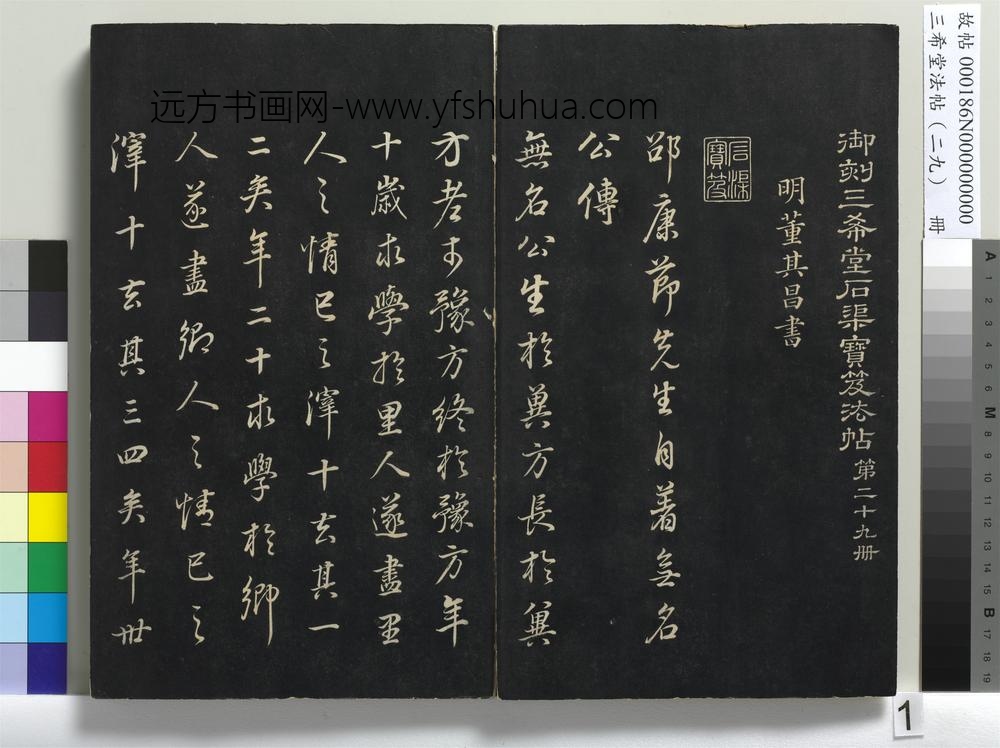 御刻三希堂石渠寶笈法帖 第二十九册
明董其昌書
石渠寶笈
邵康節先生自着無名
公傳
無名公生於冀方長於冀
方老於豫方終於豫方年
十歲求學於里人遂盡里
人之情己之滓十去其一
二矣年二十求學於鄉
人遂盡鄉人之情己之
滓十去其三四矣年卅
远方书画网-www.yfshuhua.com
故帖 000186N000000000
三希堂法帖(二九) 册
A 1 2 3 4 5 6 M 8 9 10 11 12 13 14 15 B 17 18 19
1